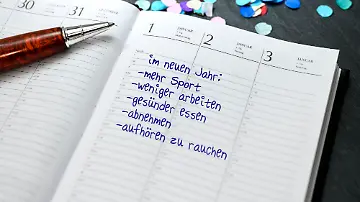 30
31
1
JANUAR
2
JANUAR
3
JANUAR
im neuen Jahr:
-mehr Sport
-weniger arbeiten
-gesünder essen
-abnehmen
-aufhören zu rauchen